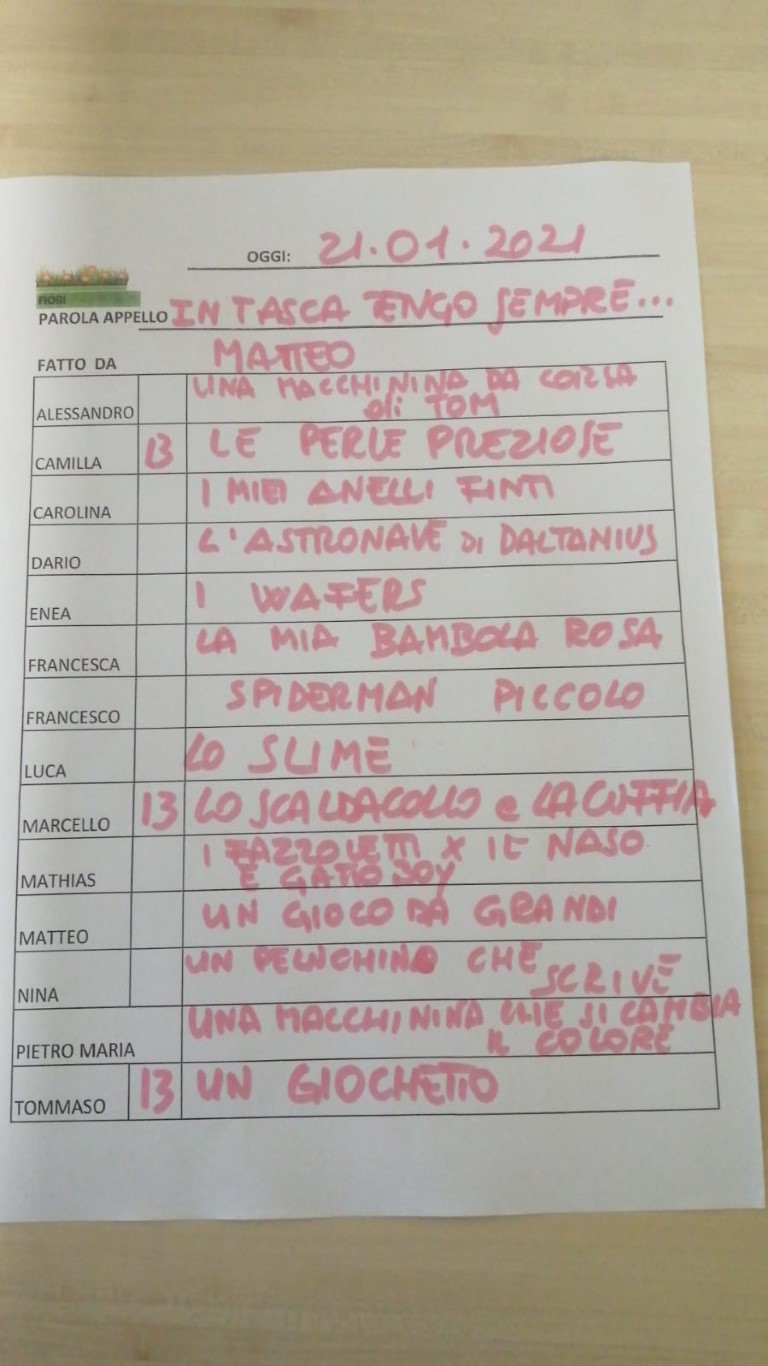 OGGI: 21.01.2021
FIORI
PAROLA APPELLO IN TASCA TENGO SEMPRE...
FATTO DA MATTEO
ALESSANDRO UNA MACCHININA DA CORSA
di TOM
CAMILLA 13 LE PERLE PREZIOSE
CAROLINA I MIEI ANELLI FINTI
DARIO L'ASTRONAVE DI DALTANIUS
ENEA I WAFERS
FRANCESCA LA MIA BAMBOLA ROSA
FRANCESCO SPIDERMAN PICCOLO
LUCA LO SLIME
MARCELLO 13 LO SCALDACOLLO e LA CUFFIA
MATHIAS I FAZZOLETTI X IL NASO
E GATTO BOY
MATTEO UN GIOCO DA GRANDI
NINA UN PELUCHINO CHE
SCRIVE
PIETRO MARIA UNA MACCHININA CHE SI CAMBIA
IL COLORE
TOMMASO 13 UN GIOCHETTO